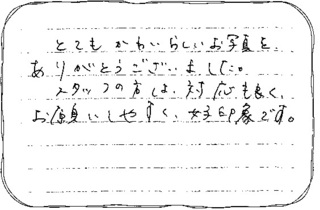 とてもかわいらしいお写真を、
ありがとうございました。
スタッフの方も、対応も良く、
お願いしやすく、好印象です。